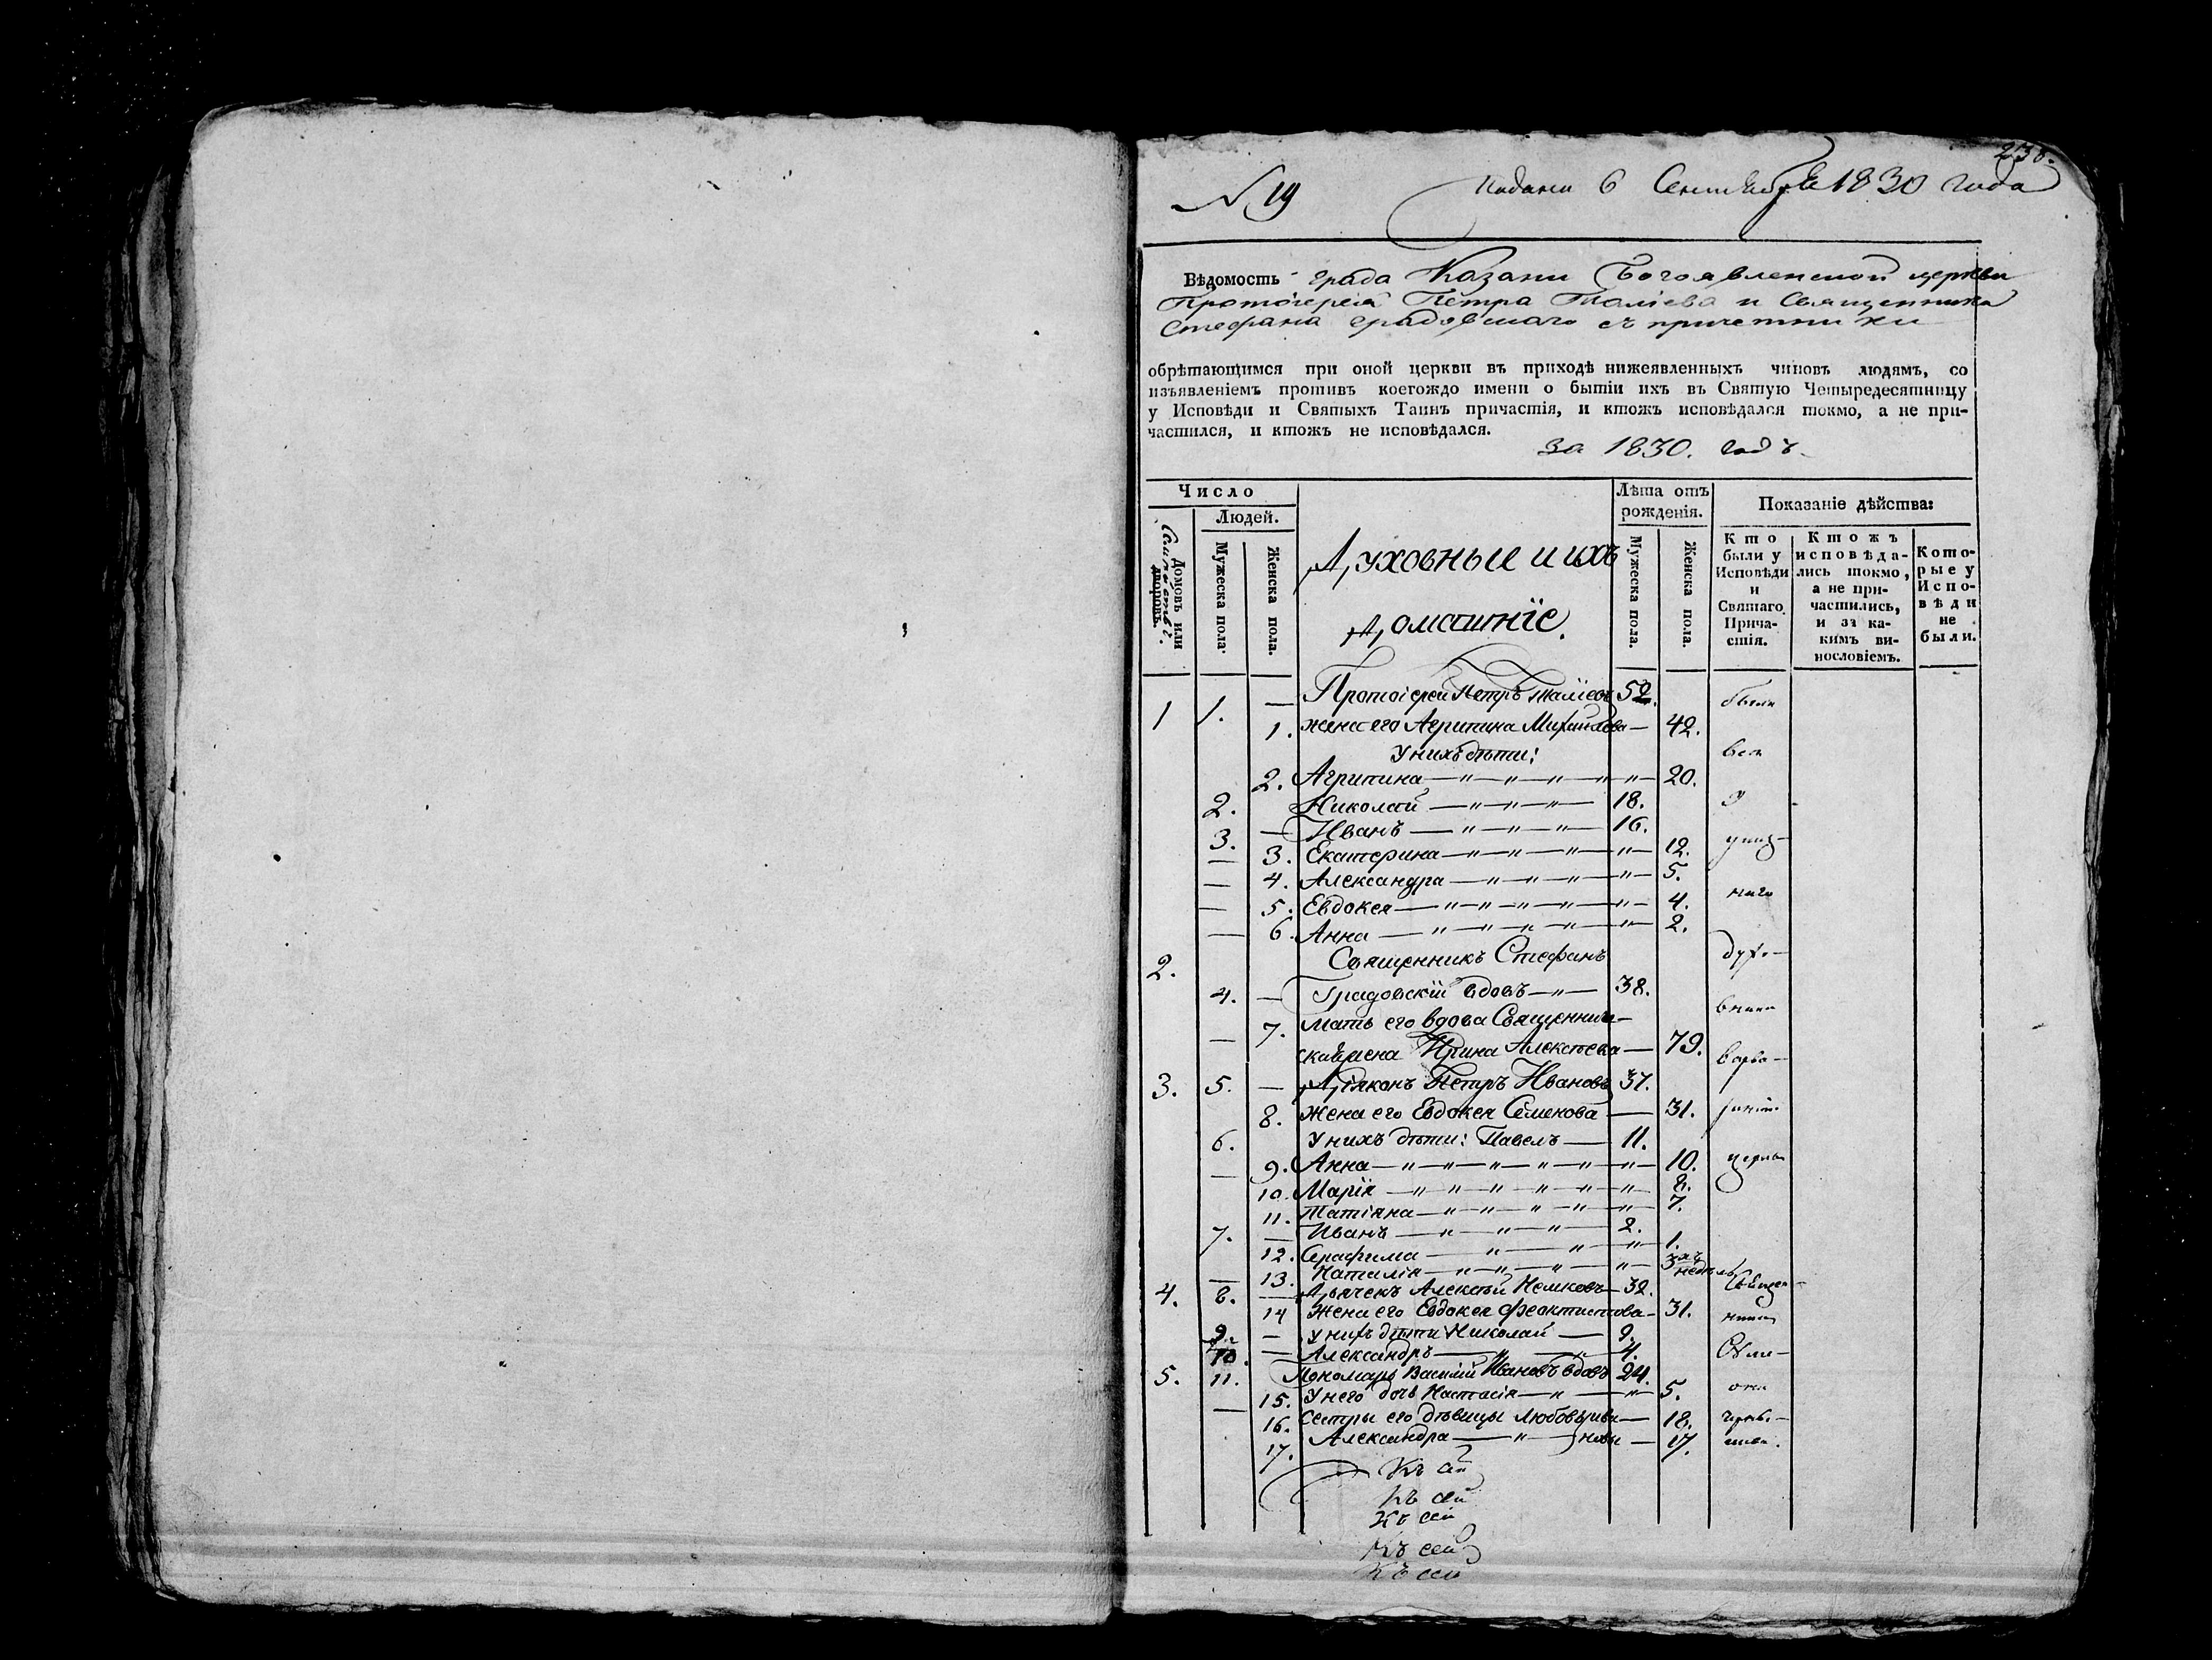 238.
N 19 Подана 6 Сентября 1830 года
Вѣдомость града Казани Богоявленской церкви
Протоіерея Петра Таліева и Священника
Стефана Градовскаго съ причетники
обрѣтающимся при оной церкви въ приходѣ нижеявленныхъ чиновъ людямъ, со
изъявленіемъ противъ коегождо имени о бытіи ихъ въ Святую Четыредесятницу
у Исповѣди и Святыхъ Таинъ причастія, и ктожъ исповѣдался токмо, а не при-
частился, и ктожъ не исповѣдался.
за 1830. годъ.
Число
Людей.
Домовъ или дворовъ.
Мужеска пола.
Женска пола.
Духовные и ихъ
домашніе.
Лѣта отъ рожденія.
Мужеска пола.
Женска пола.
Показаніе дѣйства:
Кто были у Исповѣди и Святаго Прича-стія.
Ктожъ исповѣда-лись токмо, а не при-частились, и за ка-кимъ ви-нословіемъ.
Кото-рые у Испо-вѣди не были.
1 1. — Протоіерей Петръ Таліевъ 52. были
1. жена его Агрипина Михайлова — 42.
У нихъ дѣти: вси
2. Агрипина — " — " — " — " — 20.
2. Николай — " — " — " — 18. у
3. — Иванъ — " — " — " — 16.
— 3. Екатерина — " — " — " — " — 12.
— 4. Александра — " — " — " — " — 5.
— 5. Евдокея — " — " — " — " — " — 4.
— 6. Анна — " — " — " — " — " — 2.
2. Священникъ Стефанъ духо-
4. — Градовскій вдовъ — " — 38.
— 7. Мать его вдова Священнич-
ская жена Ирина Алексѣева — 79.
3. 5. — Діяконъ Петръ Ивановъ 37.
8. Жена его Евдокея Семенова — 31.
6. У нихъ дѣти: Павелъ — 11.
— 9. Анна — " — " — " — " — " — " — 10. церкви
10. Марія — " — " — " — " — " — " — 8.
11. Татіяна — " — " — " — " — " — 7.
7. — Иванъ — " — " — " — 2.
12. Серафима — " — " — " — 1.
— 13. Наталія — " — " — " — " — 3хъ недѣль
4. 8. — Дьячекъ Алексѣй Немковъ — 32. Священ-
14 Жена его Евдокея Феоктистова — 31. никъ
9. — У нихъ дѣти Николай — 9.
10. — Александръ — " — " — 4.
5. 11. Пономарь Василій Ивановъ вдовъ 24.
— 15. У него дочь Настасія — " — " — 5.
16. Сестры его дѣвицы Любовь Ива- — 18.
17. Александра — " — новы — 17.
Къ сей
Къ сей
Къ сей
Къ сей
Къ сей